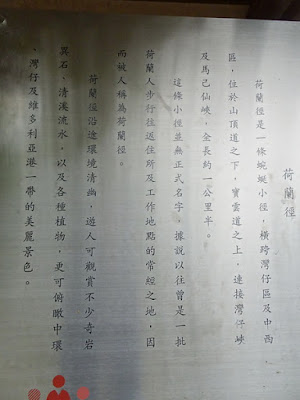 荷蘭徑
荷蘭徑是一條蜿蜒小徑，橫跨灣仔區及中西
區，位於山頂道之下，寶雲道之上，連接灣仔峽
及馬己仙峽，全長約一公里半。
這條小徑並無正式名字，據說以往曾是一批
荷蘭人步行往返住所及工作地點的常經之地，因
而被人稱為荷蘭徑。
荷蘭徑沿途環境清幽，遊人可觀賞不少奇岩
異石、清溪流水，以及各種植物，更可俯瞰中環
、灣仔及維多利亞港一帶的美麗景色。